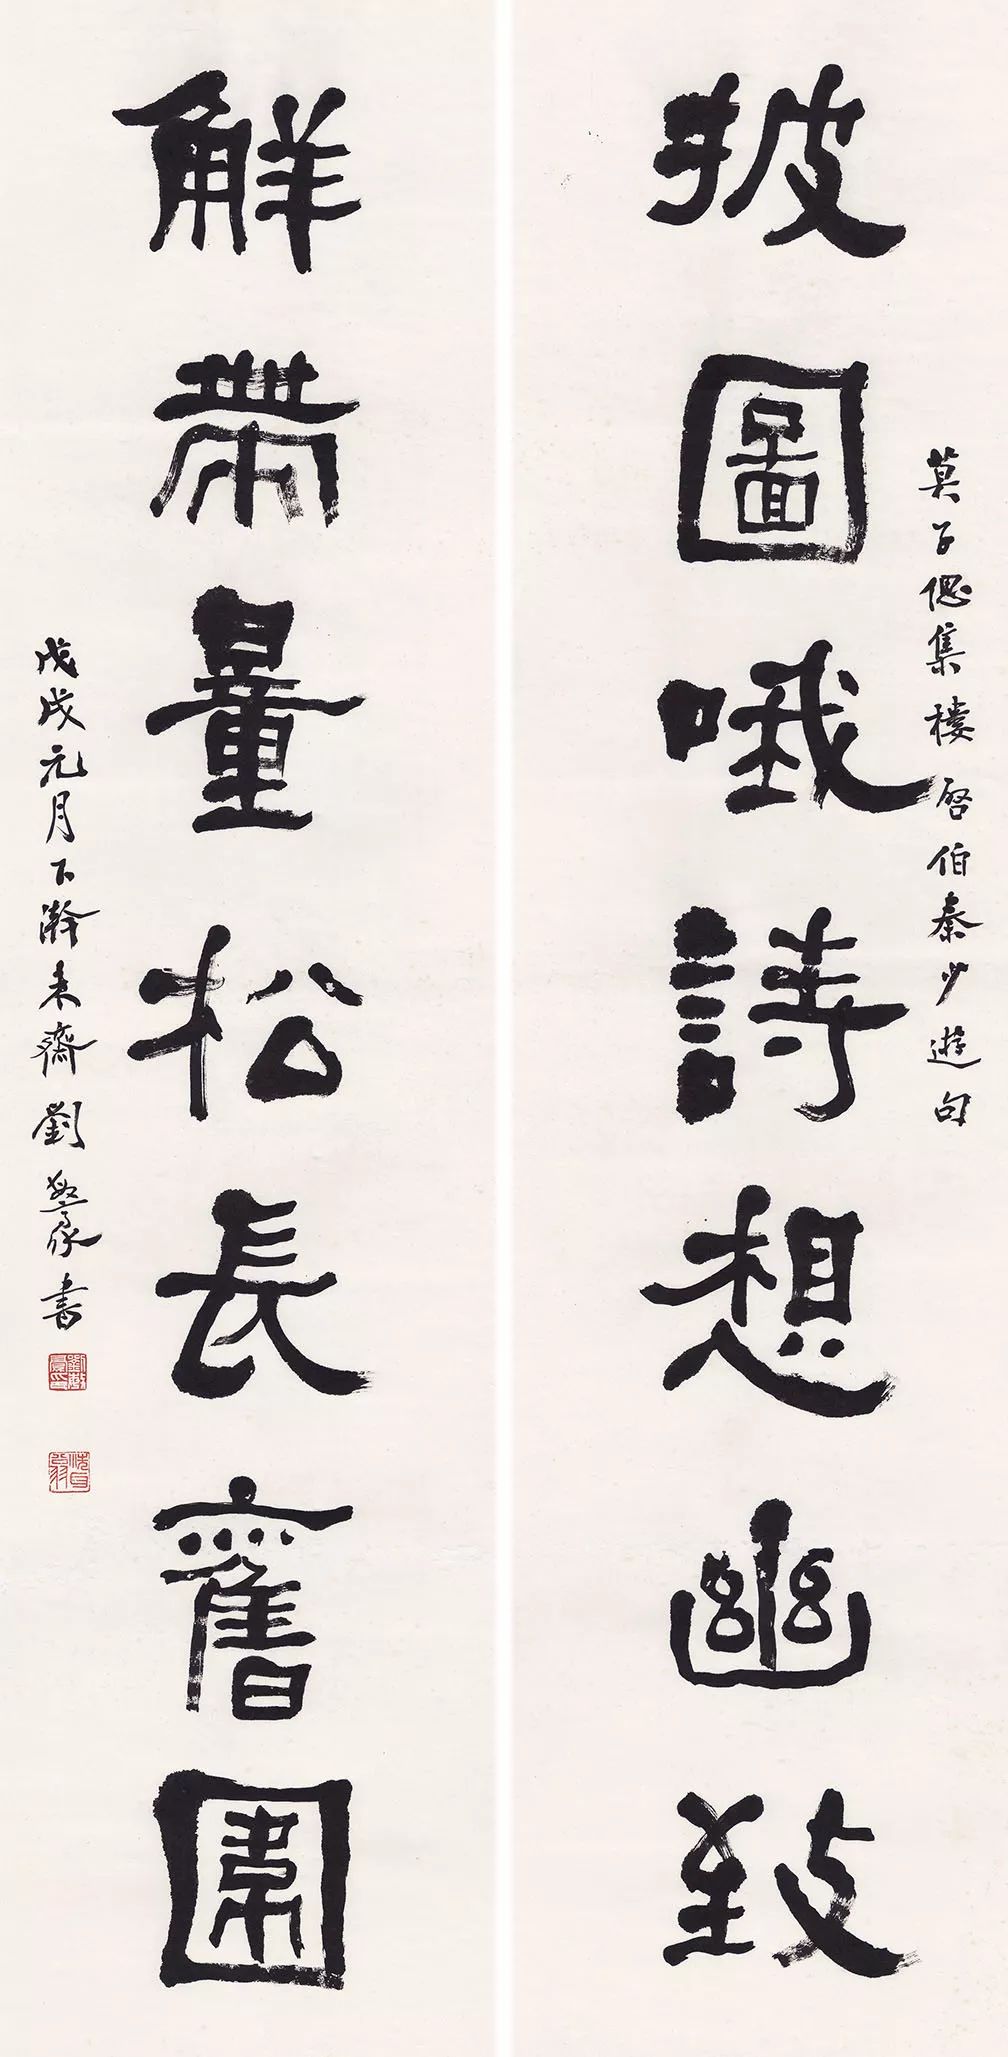 莫子偲集樓啓伯秦少遊句
披圖哦詩想幽致
解帶量松長舊圍
戊戌元月下澣未齋劉書